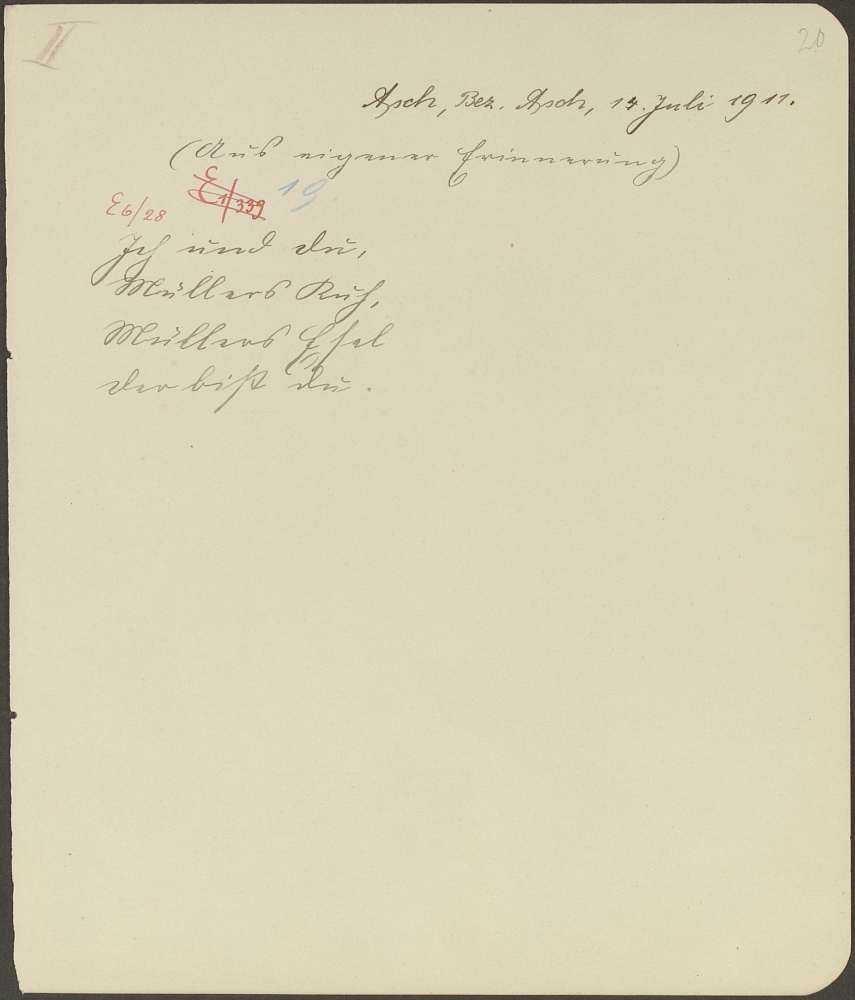 II
20
Asch, Bez. Asch, 14. Juli 1911.
(Aus eigener Erinnerung)
E 1/339 19.
E6/28
Ich und du,
Müllers Kuh,
Müllers Esel
der bist du.